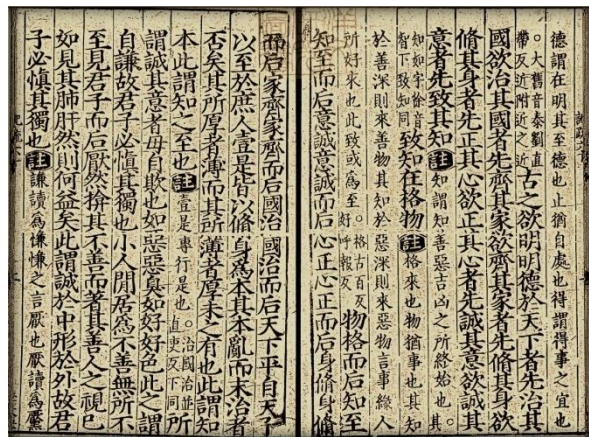 德謂在明其至德也止猶自處也得謂得事之宜也
。大舊音泰劉直帶反近附近之近古之欲明明德於天下者先治其
國欲治其國者先齊其家欲齊其家者先脩其身欲
脩其身者先正其心欲正其心者先誠其意欲誠其
意者先致其知註知謂知善惡吉凶之所終始也。其
知如字徐音智下致知同致知在格物註格來也物猶事也其知
於善深則來善物其知於惡深則來惡物言事緣人
所好來也此致或爲至。格古百反好呼報反物格而后知至
知至而后意誠意誠而后心正心正而后身脩身脩
而后家齊家齊而后國治國治而后天下平自天子
以至於庶人壹是皆以脩身爲本其本亂而末治者
否矣其所厚者薄而其所薄者厚未之有也此謂知
本此謂知之至也註壹是專行是也。治國治並直吏反下同所
謂誠其意者毋自欺也如惡惡臭如好好色此之謂
自謙故君子必慎其獨也小人閒居爲不善無所不
至見君子而后厭然揜其不善而著其善人之視己
如見其肺肝然則何益矣此謂誠於中形於外故君
子必慎其獨也註謙讀爲慊慊之言厭也厭讀爲黶